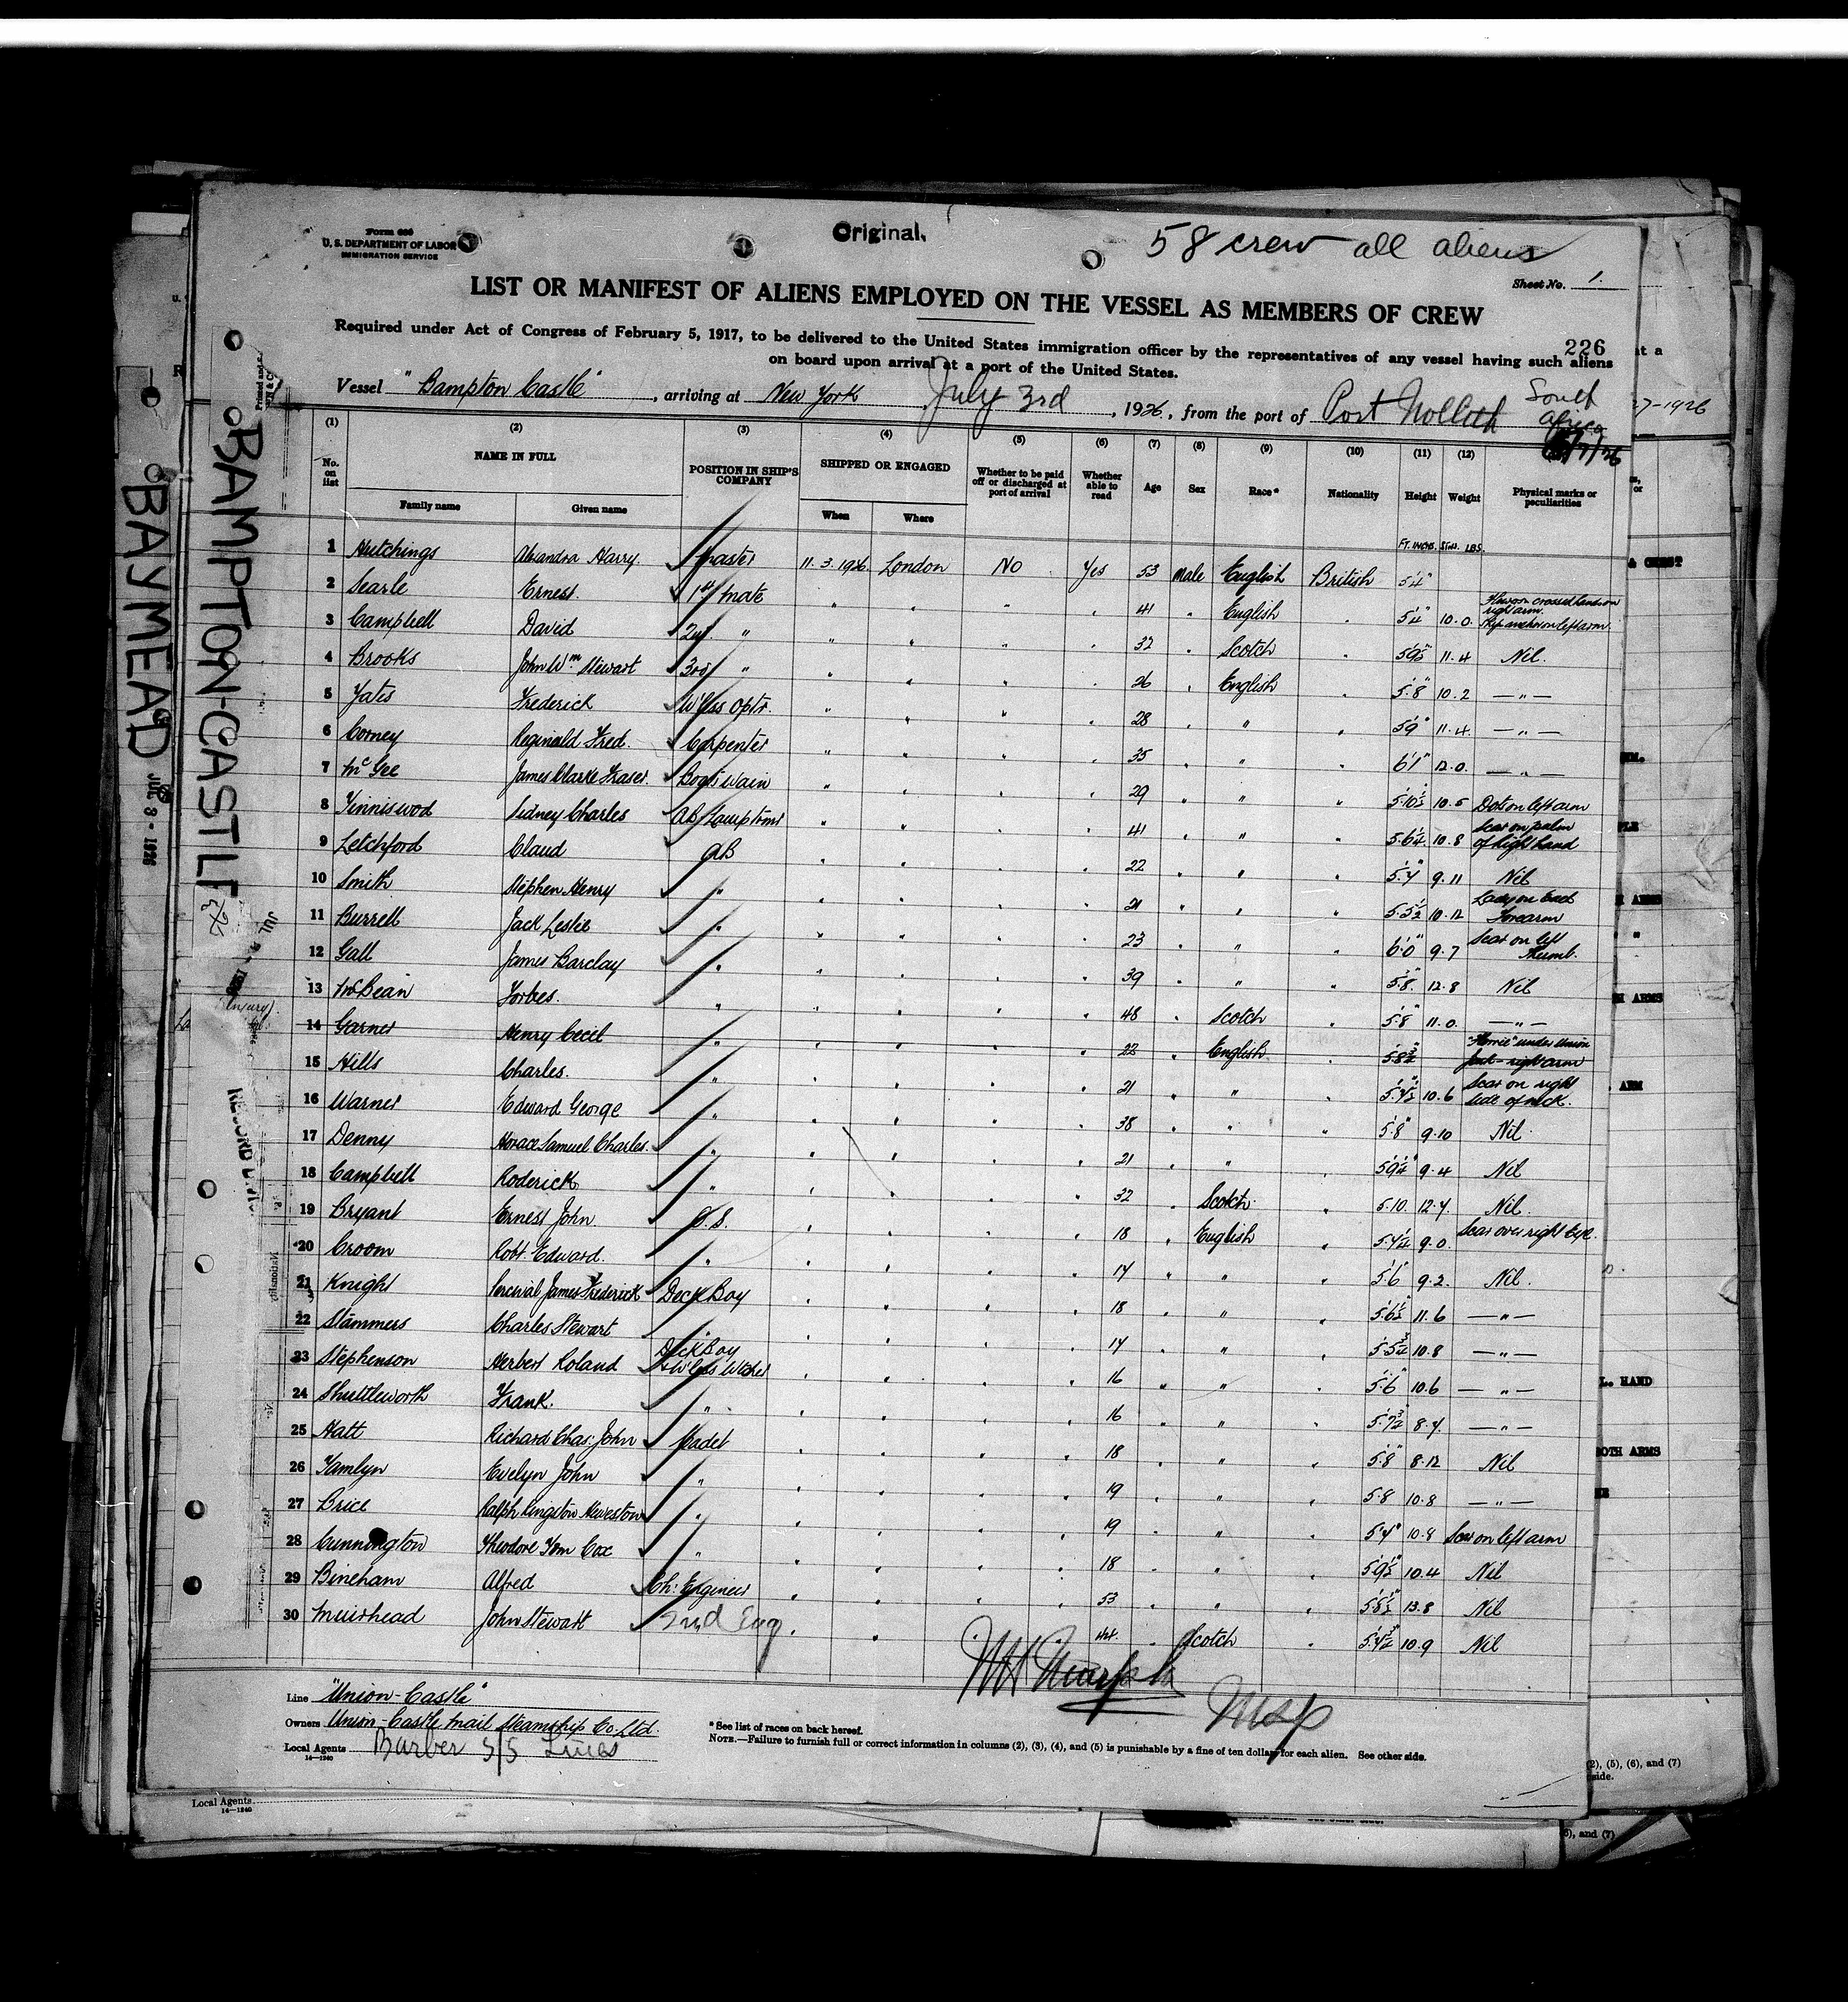 Form 686
U. S. DEPARTMENT OF LABOR
IMMIGRATION SERVICE
Original.
58 crew all aliens
Sheet No. 1.
LIST OR MANIFEST OF ALIENS EMPLOYED ON THE VESSEL AS MEMBERS OF CREW
Required under Act of Congress of February 5, 1917, to be delivered to the United States immigration officer by the representatives of any vessel having such aliens
on board upon arrival at a port of the United States.
226
Vessel "Bampton Castle", arriving at New York July 3rd, 1926, from the port of Port Nolloth South Africa
(1) (2) (3) (4) (5) (6) (7) (8) (9) (10) (11) (12)
No. on list
NAME IN FULL
Family name
Given name
POSITION IN SHIP'S COMPANY
SHIPPED OR ENGAGED
When
Where
Whether to be paid off or discharged at port of arrival
Whether able to read
Age
Sex
Race*
Nationality
Height
Weight
Physical marks or peculiarities
FT. INCHS. STNS. LBS.
1 Hutchings Alexandra Harry. Master 11.3.1926 London No Yes 53 Male English British 5'4"
2 Searle Ernest. 1st Mate " " " " 41 " English " 5'4" 10.0. crossed hands on right arm. Ship anchor on left arm.
3 Campbell David 2nd " " " " " 32 " Scotch " 5'9½" 11.4 Nil.
4 Brooks John Wm Stewart 3rd " " " " " 26 " English " 5'8" 10.2 — " —
5 Yates Frederick W'less Optr. " " " " 28 " " " 5'9" 11.4. — " —
6 Corney Reginald Fred. Carpenter " " " " 35 " " " 6'1" 12.0. — " —
7 McGee James Clarke Fraser. Boatswain " " " " 29 " " " 5'10½ 10.5 Dots on left arm
8 Tinniswod Sidney Charles AB/Lamptrmr " " " " 41 " " " 5.6¼ 10.8 Scar on palm of right hand
9 Letchford Claud AB " " " " 22 " " " 5'4" 9.11 Nil
10 Smith Stephen Henry " " " " " 21 " " " 5.5½ 10.12 Forearm
11 Burrell Jack Leslie " " " " " 23 " " " 6'0" 9.7 Scar on left Thumb.
12 Gall James Barclay " " " " " 39 " " " 5'8" 12.8 Nil
13 McBean Forbes. " " " " " 48 " Scotch " 5'8" 11.0. — " —
14 Garner Henry Cecil " " " " " 22 " English " under Union Jack - right arm
15 Hills Charles. " " " " " 21 " " " 5'4½" 10.6 Scar on right side of neck.
16 Warner Edward George " " " " " 38 " " " 5'8" 9.10 Nil.
17 Denny Horace Samuel Charles. " " " " " 21 " " " 5'9¼" 9.4 Nil
18 Campbell Roderick " " " " " 32 " Scotch. " 5.10. 12.4. Nil.
19 Bryant Ernest John O.S. " " " " 18 " English " 5.4¼ 9.0. Scar over right Eye.
20 Croom Robt. Edward. " " " " " 17 " " " 5'6" 9.2. Nil.
21 Knight Percival James Frederick Deck Boy " " " " 18 " " " 5'6½ 11.6 — " —
22 Stammers Charles Stewart " " " " " 17 " " " 5'5¾ 10.8 — " —
23 Stephenson Herbert Roland Deck Boy & W'less Watcher " " " " 16 " " " 5'6" 10.6 — " —
24 Shuttleworth Frank. " " " " " 16 " " " 5'7¾ 8.4. — " —
25 Hatt Richard Chas: John Cadet " " " " 18 " " " 5'8" 8.12 Nil
26 Tamlyn Evelyn John " " " " " 19 " " " 5.8 10.8 — " —
27 Brice Ralph Kingston Heweston " " " " " 19 " " " 5'4" 10.8 Scar on left arm
28 Cunnington Theodore Tom Cox " " " " " 18 " " " 5'9½" 10.4 Nil
29 Bineham Alfred Ch: Engineer " " " " 53 " " " 5'8½" 13.8 Nil
30 Muirhead John Stewart 2nd Eng " " " " 44. " Scotch " 5'4¾ 10.9 Nil
Line "Union-Castle"
Owners Union-Castle Mail Steamship Co. Ltd.
Local Agents Barber S/S Lines
14—1240
* See list of races on back hereof.
NOTE.—Failure to furnish full or correct information in columns (2), (3), (4), and (5) is punishable by a fine of ten dollars for each alien. See other side.
BAMPTON-CASTLE
BAYMEAD
JUL 3 - 1926
27-1926
at a
ARMS
ARM
L. HAND
BOTH ARMS
(2), (5), (6), and (7)
side.
Local Agents
14—1240
6), and (7)